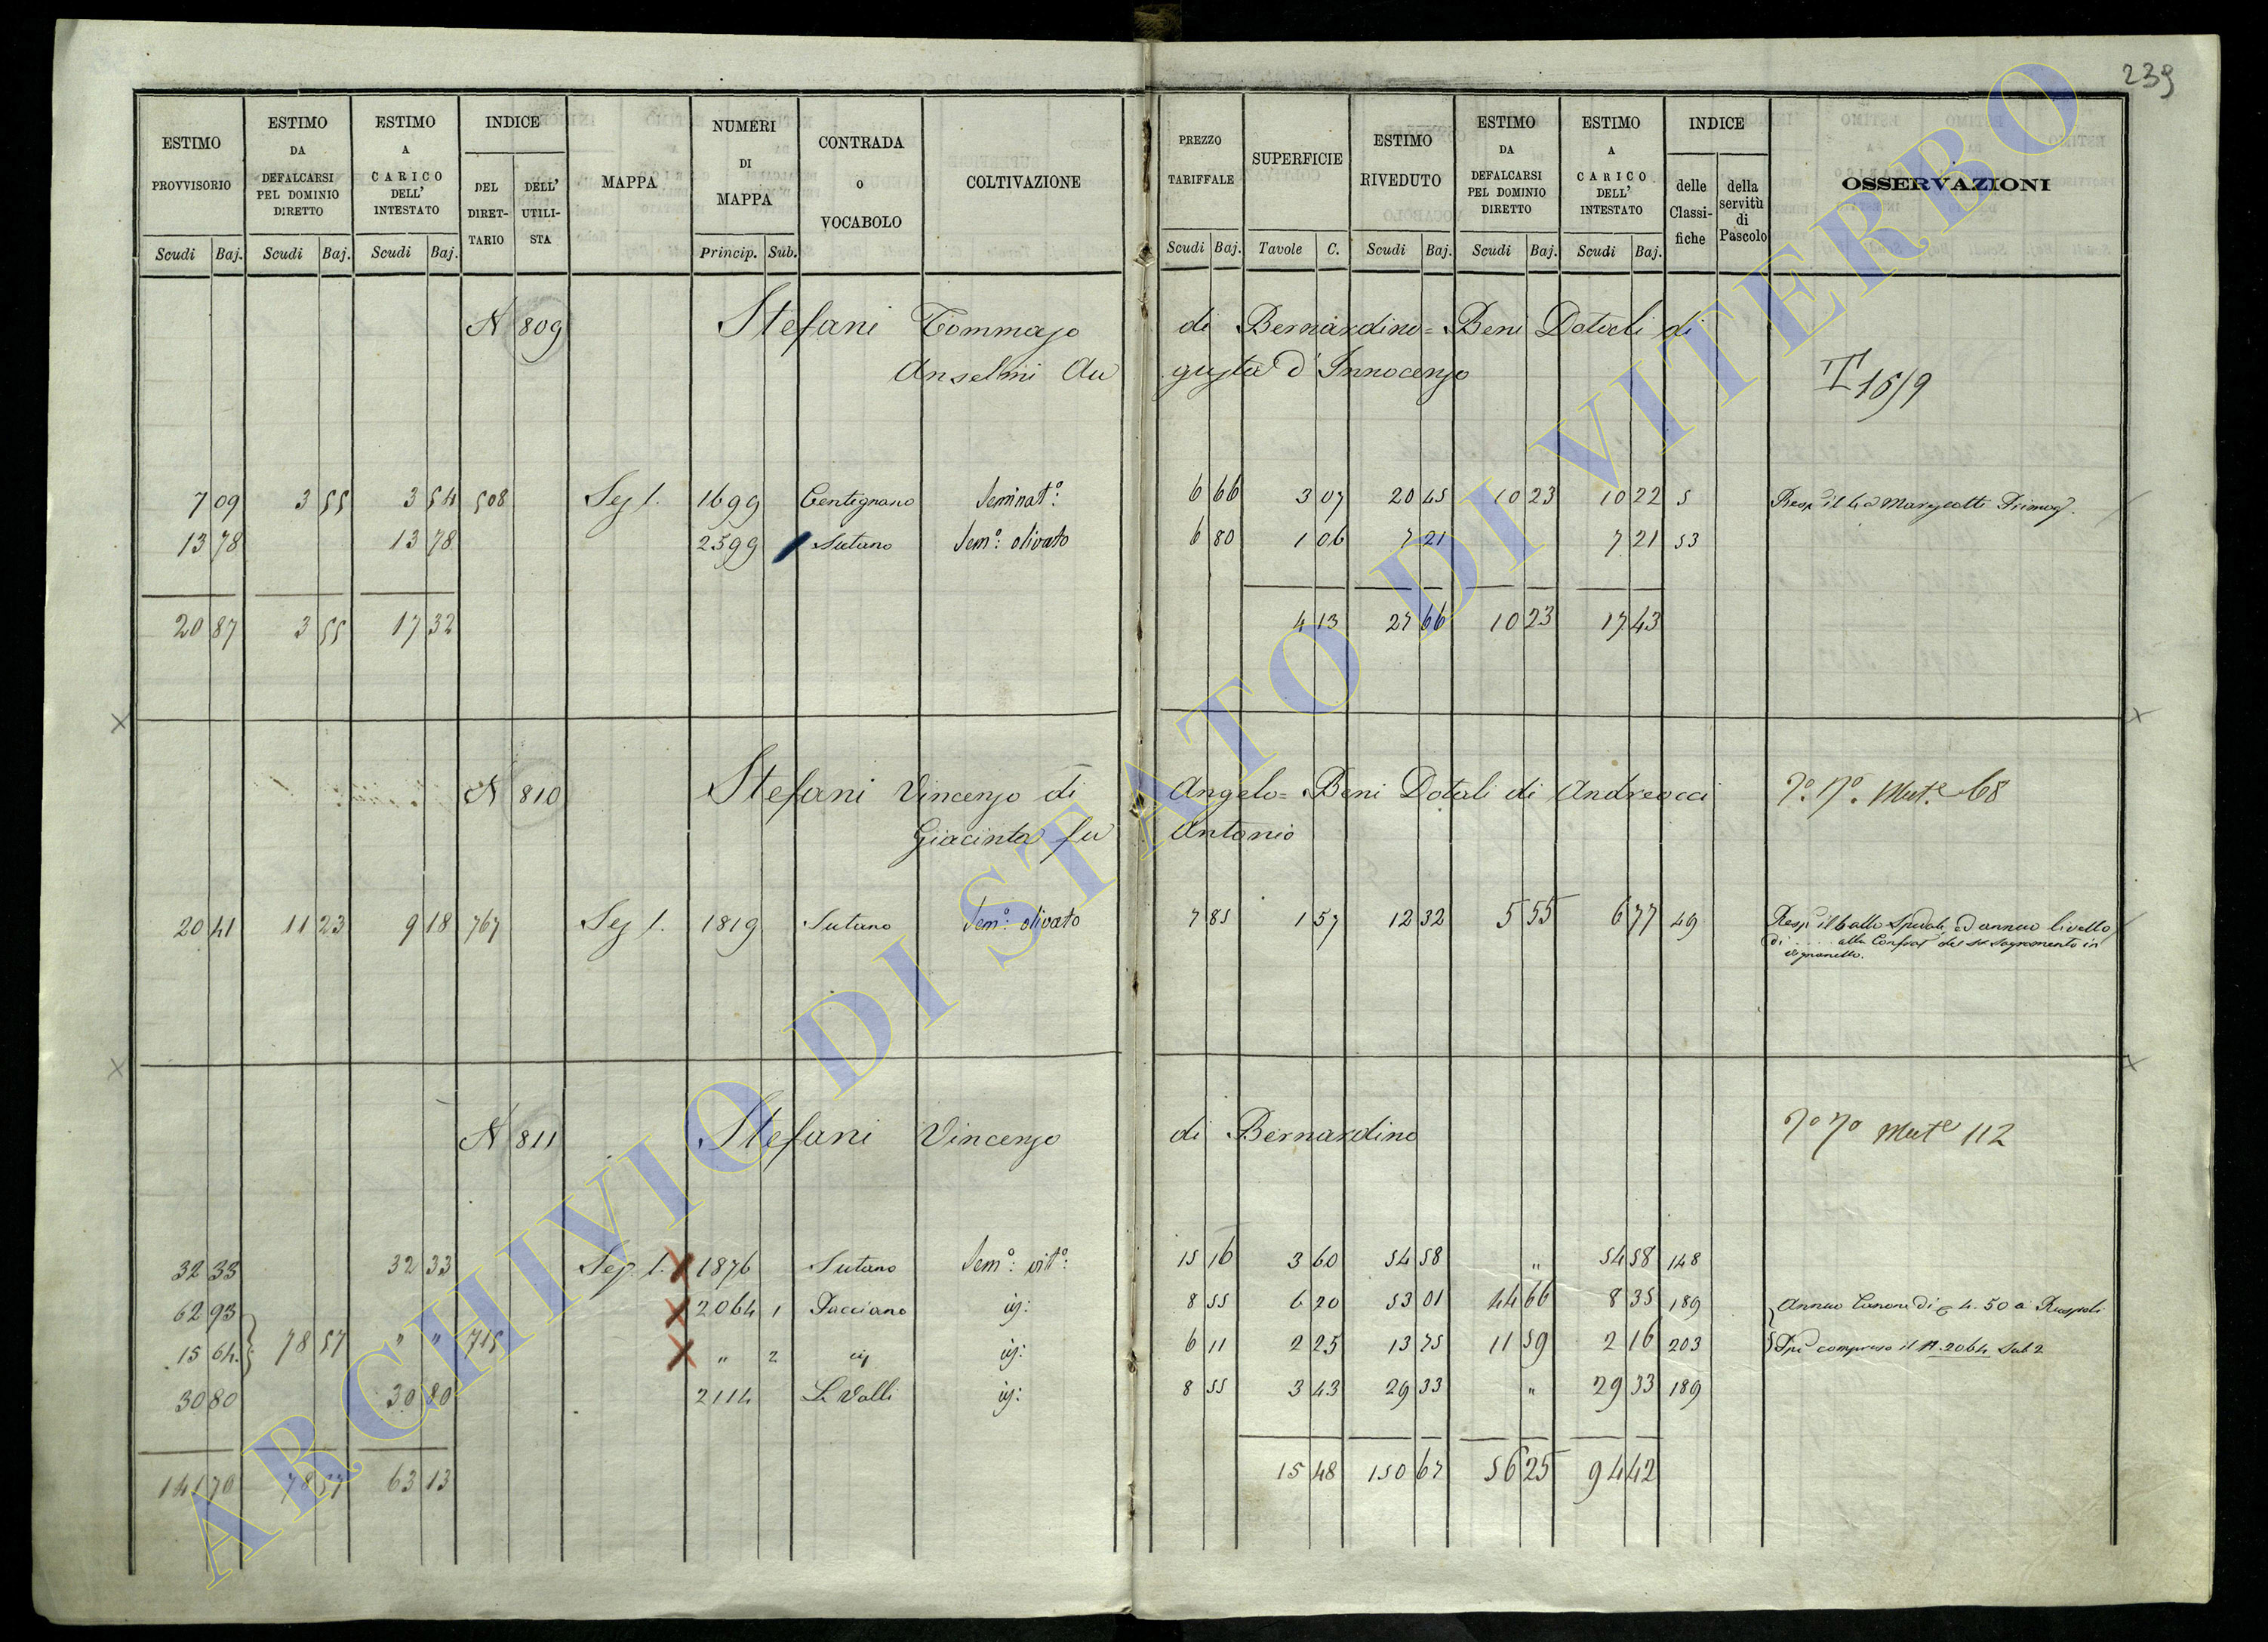 239
ESTIMO PROVVISORIO Scudi Baj. ESTIMO DA DEFALCARSI PEL DOMINIO DIRETTO Scudi Baj. ESTIMO A CARICO DELL' INTESTATO Scudi Baj. INDICE DEL DIRET-TARIO DELL' UTILI-STA MAPPA NUMERI DI MAPPA Princip. Sub. CONTRADA O VOCABOLO COLTIVAZIONE PREZZO TARIFFALE Scudi Baj. SUPERFICIE Tavole C. ESTIMO RIVEDUTO Scudi Baj. ESTIMO DA DEFALCARSI PEL DOMINIO DIRETTO Scudi Baj. ESTIMO A CARICO DELL' INTESTATO Scudi Baj. INDICE delle Classi-fiche della servitù di Pascolo OSSERVAZIONI
N 809 Stefani Tommaso di Bernardino = Beni Dotali di
Anselmi Augusta d'Innocenzo
T 15/9
7 09 3 55 3 54 508 Sez 1. 1699 Centignano Seminat.º 6 66 3 07 20 45 10 23 10 22 5
13 78 13 78 2599 Sutano Sem.º olivato 6 80 1 06 7 21 7 21 53
20 87 3 55 17 32 4 13 27 66 10 23 17 43
N 810 Stefani Vincenzo di Angelo = Beni Dotali di Andreocci
Giacinta fu Antonio
Mut.e 68
20 41 11 23 9 18 767 Sez 1. 1819 Sutano Sem.º olivato 7 85 1 57 12 32 5 55 6 77 49 annuo livello
di alla Confrat del SS Sagramento in
Vignanello.
N 811 Stefani Vincenzo di Bernardino
Mut.e 112
32 33 32 33 Sez. 1. 1876 Sutano Sem.º vit.º 15 16 3 60 54 58 " 54 58 148
62 93 2064 1 Pacciano id: 8 55 6 20 53 01 44 66 8 35 189 Annuo Canone di 4.50 a Ruspoli
15 64 78 57 " " 715 " 2 id id: 6 11 2 25 13 75 11 59 2 16 203 compreso il N. 2064 Sub 2
30 80 30 80 2114 Le Valli id: 8 55 3 43 29 33 " 29 33 189
141 70 78 57 63 13 15 48 150 67 56 25 94 42
ARCHIVIO DI STATO DI VITERBO